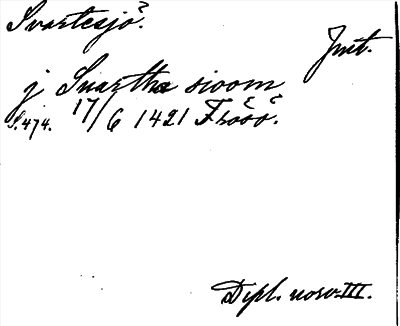 Svartesjö?.
Jmt.
j Suartha sioom
S. 474. 17/6 1421 Frösö.
Dipl. norv. III.